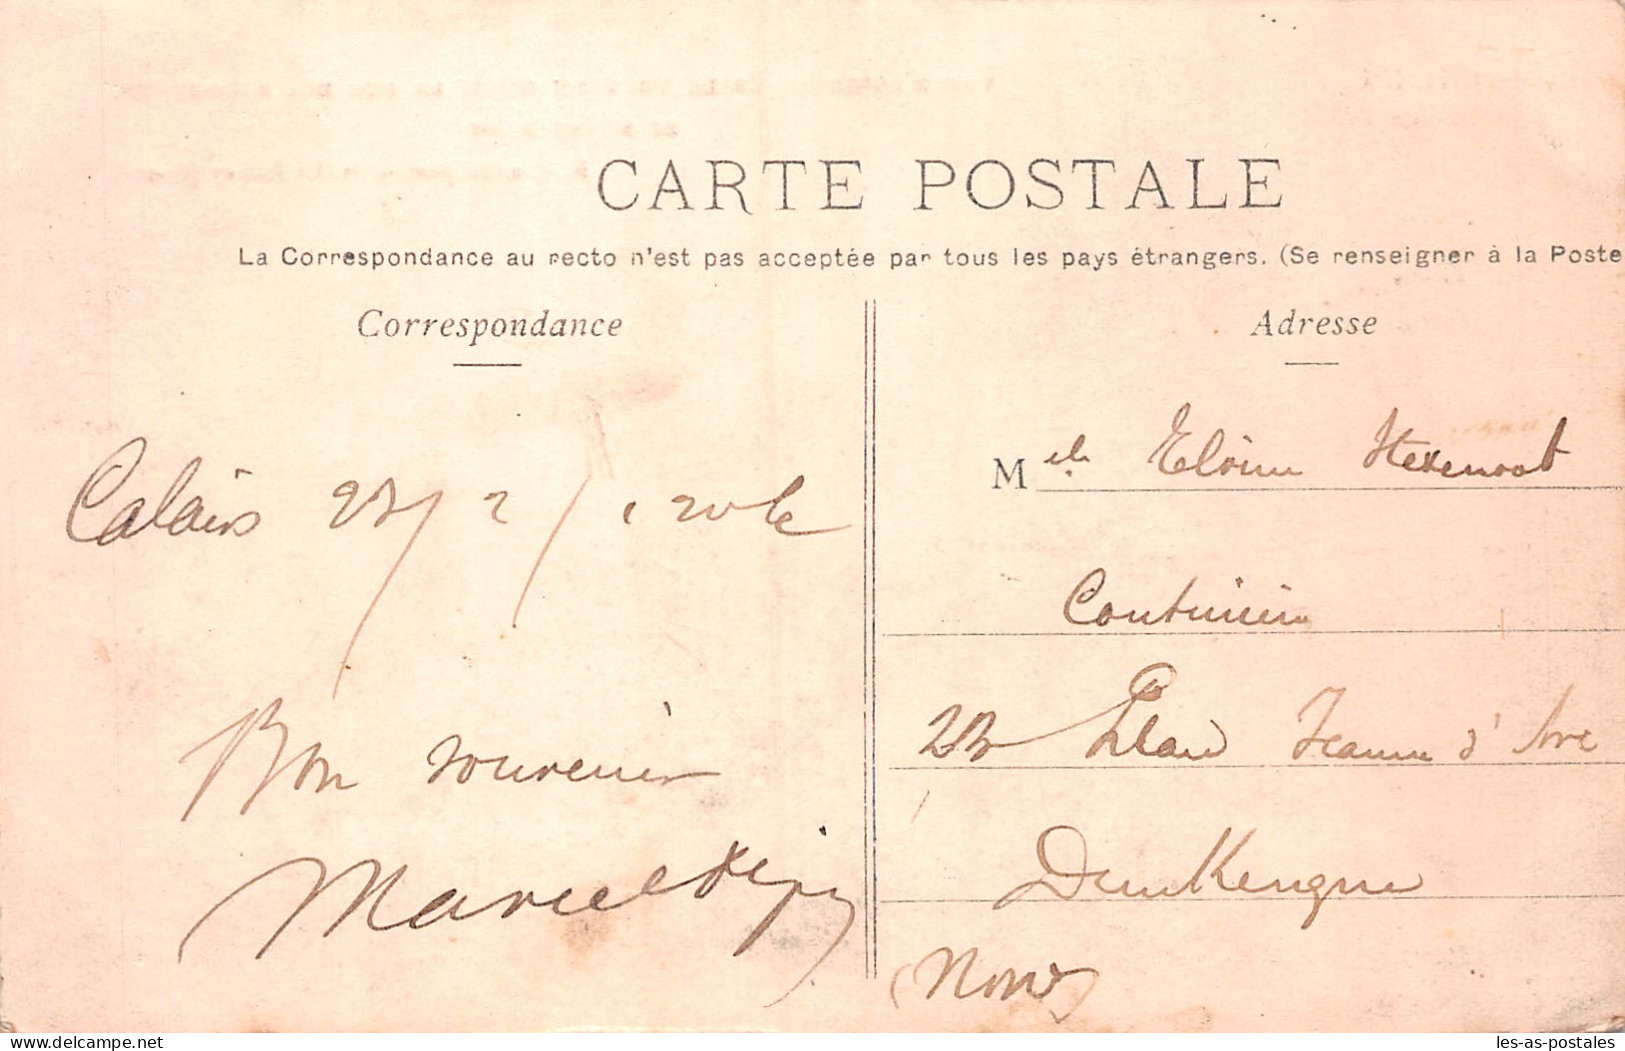 CARTE POSTALE
La Correspondance au recto n'est pas acceptée par tous les pays étrangers. (Se renseigner à la Poste
Correspondance
Calais 23/2/
Bon souvenir
Marcel
Adresse
M elle
Couturière
23 Place Jeanne d'Arc
Dunkerque
(Nord)
www.delcampe.net
les-as-postales